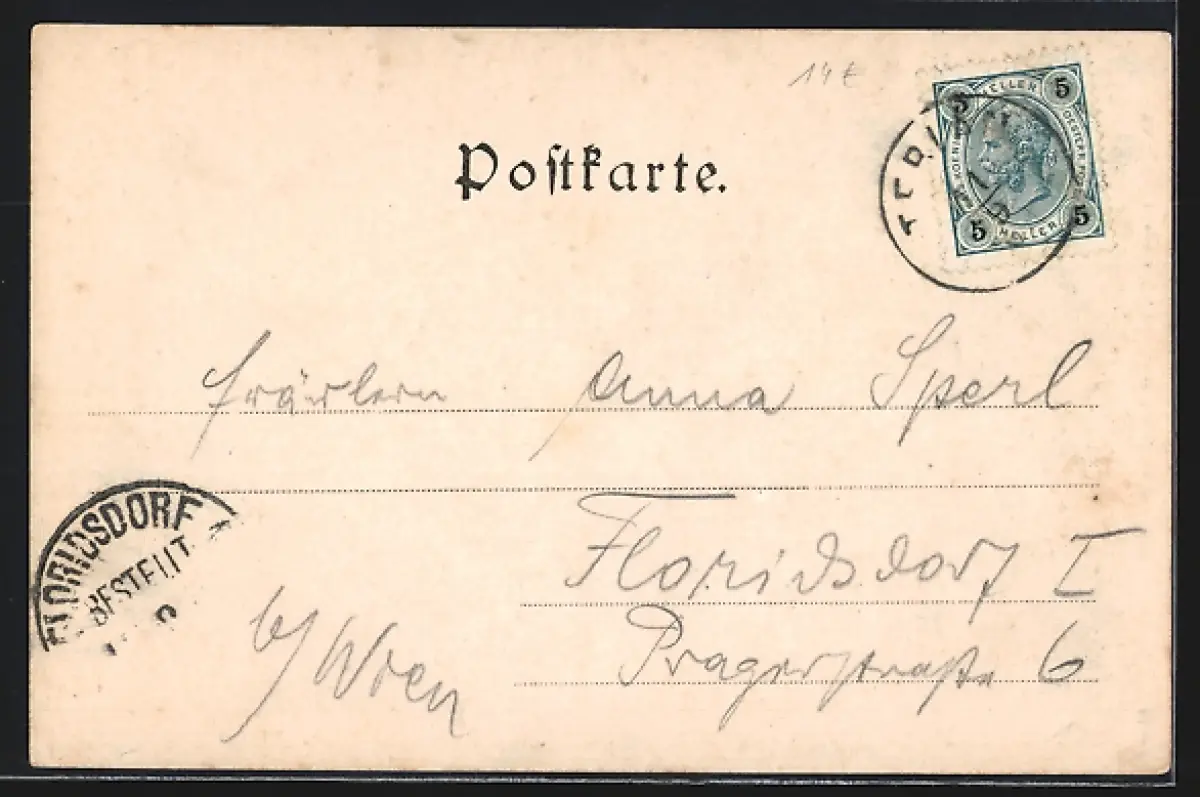 14 €
5 HELLER 5
5 HELLER 5
Postkarte.
Fräulein Anna Sperl
Floridsdorf I
Pragerstraße 6
b/ Wien
FLORIDSDORF
BESTELLT